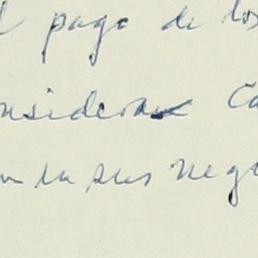 l pago de los
nsideran Ca
n en sus nego